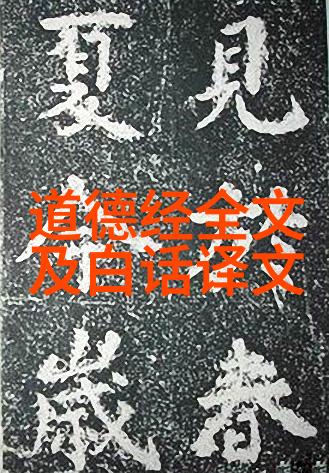 見春
夏歲
道德经全文
及白话译文